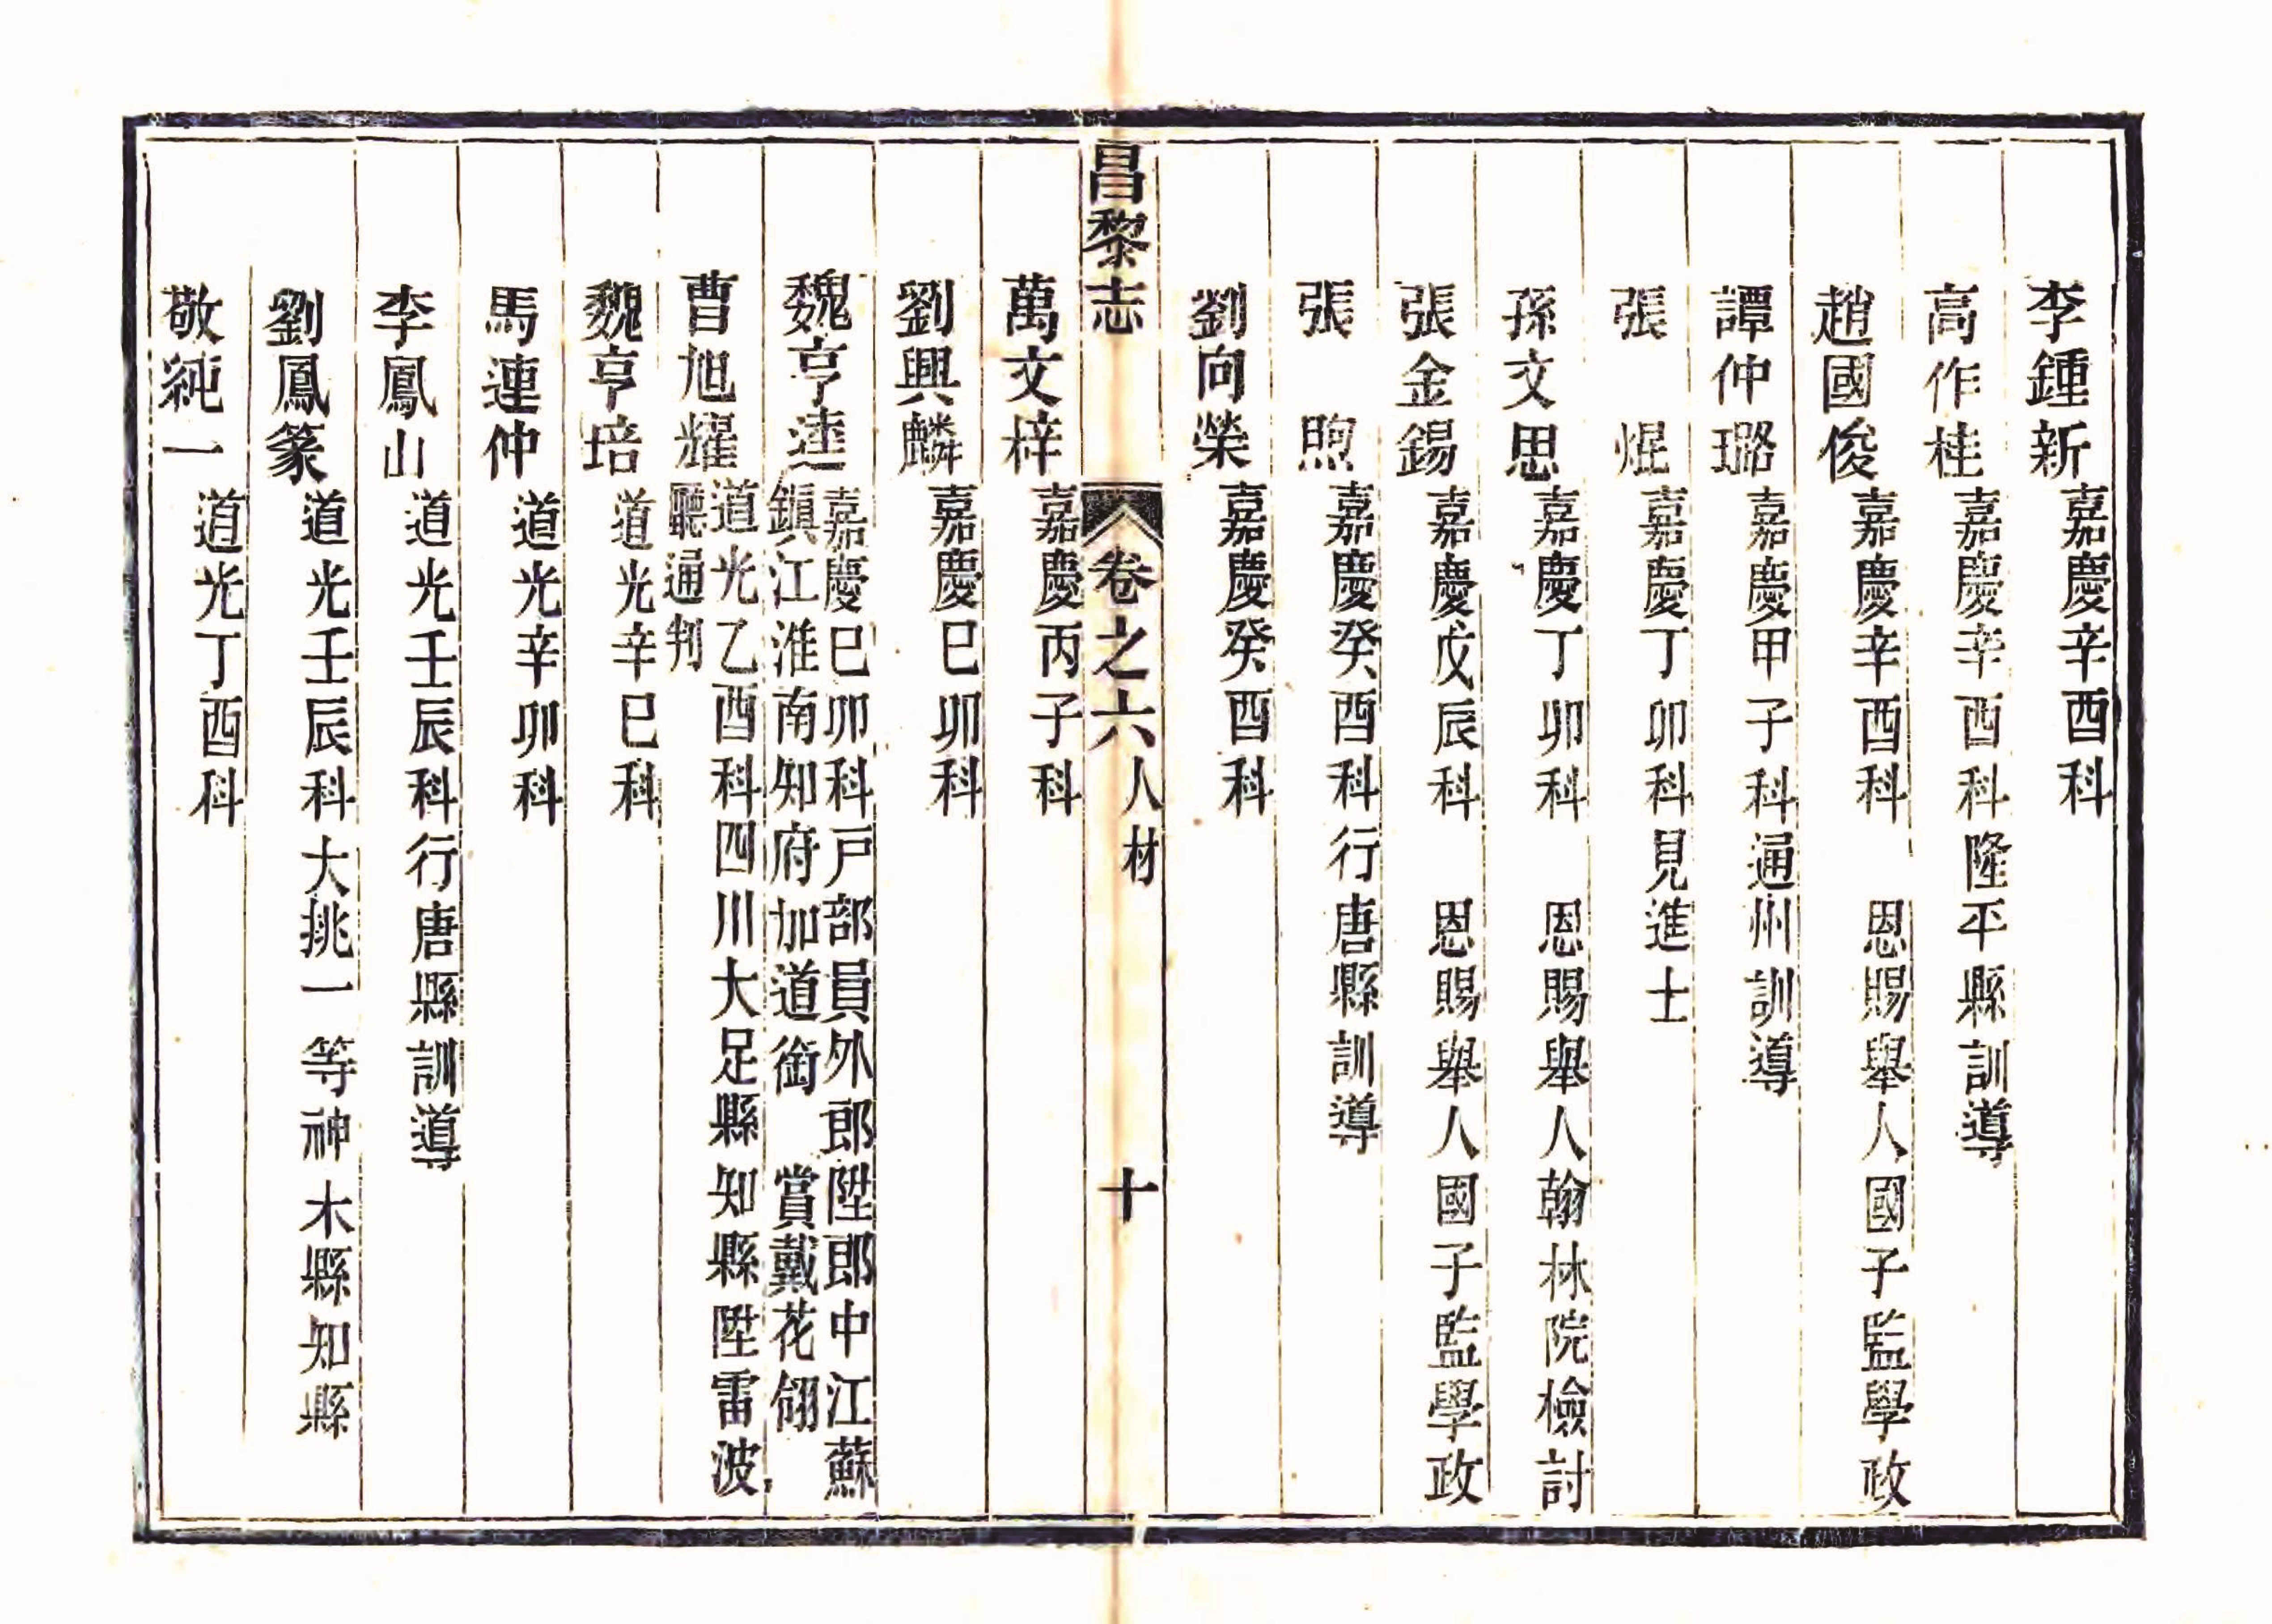 李鍾新 嘉慶辛酉科
高作桂 嘉慶辛酉科隆平縣訓導
趙國俊 嘉慶辛酉科 恩賜舉人國子監學政
譚仲璐 嘉慶甲子科通州訓導
張 焜 嘉慶丁卯科見進士
孫文思 嘉慶丁卯科 恩賜舉人翰林院檢討
張金錫 嘉慶戊辰科 恩賜舉人國子監學政
張 煦 嘉慶癸酉科行唐縣訓導
劉向榮 嘉慶癸酉科
昌黎志 卷之六 人材 十
萬文梓 嘉慶丙子科
劉興麟 嘉慶己卯科
魏亨逵 嘉慶己卯科戸部員外郎陞郎中江蘇
鎮江淮南知府加道銜 賞戴花翎
曹旭耀 道光乙酉科四川大足縣知縣陞雷波
聽通判
魏亨培 道光辛巳科
馬連仲 道光辛卯科
李鳳山 道光壬辰科行唐縣訓導
劉鳳篆 道光壬辰科大挑一等神木縣知縣
敬純一 道光丁酉科